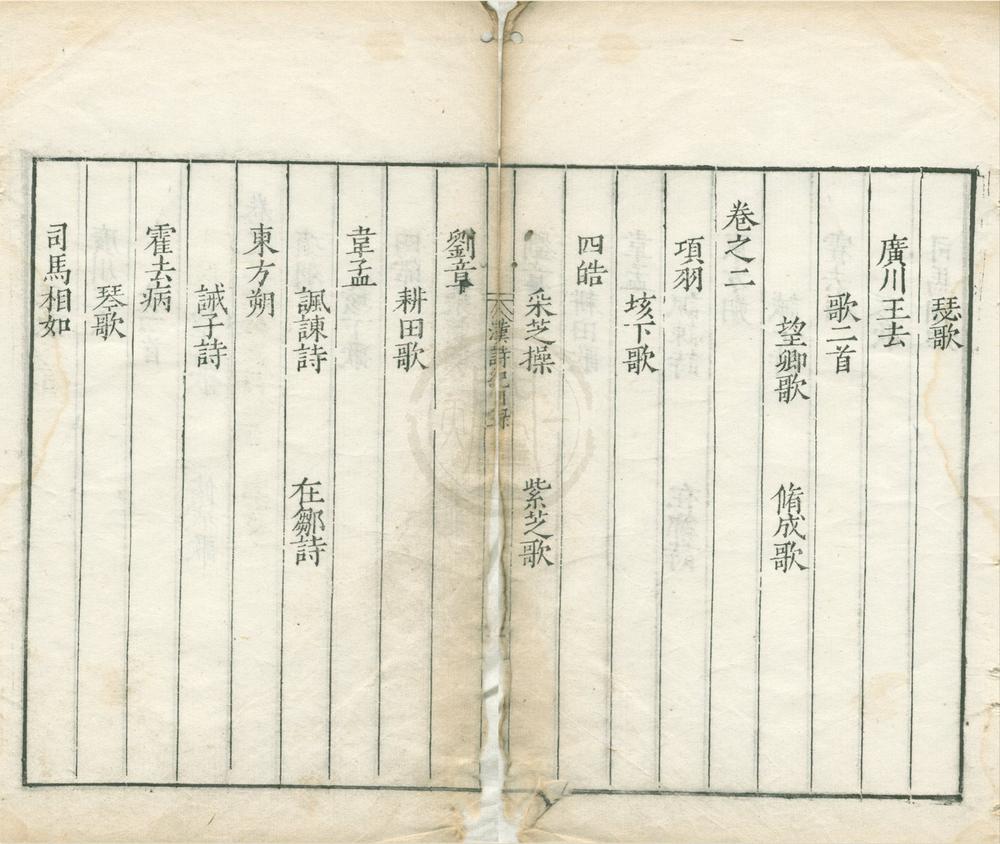 瑟歌
廣川王去
歌二首
望卿歌　脩成歌
卷之二
項羽
垓下歌
四皓
采芝操　紫芝歌
漢詩紀目錄
劉章
耕田歌
韋孟
諷諫詩　在鄒詩
東方朔
誡子詩
霍去病
琴歌
司馬相如